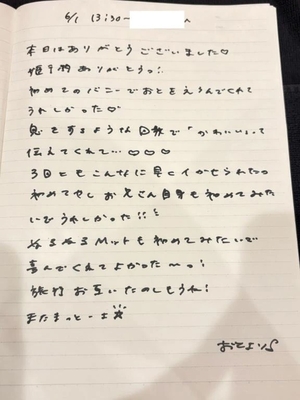 6/1 13:30〜 へ
本日はありがとうございました♡
指名ありがとうっ!
初めてのバニーでおとをえらんでくれて
うれしかった♡
息をするような回数で「かわいい」って
伝えてくれて…♡♡♡
3回ともこんなに早くイかせられたの
初めてやし お兄さん自身も初めてみた
いでうれしかった!!
ぬるぬるMットも初めてみたいで
喜んでくれてよかった〜っ!
旅行お互いたのしもうね!
またきっとーま☆
おとより